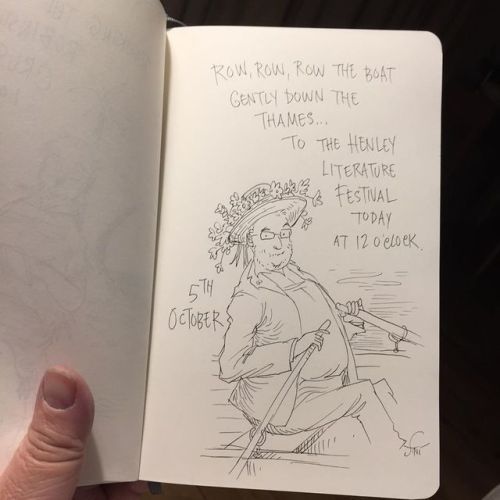 ROW, ROW, ROW THE BOAT
GENTLY DOWN THE
THAMES...
TO THE HENLEY
LITERATURE
FESTIVAL
TODAY
AT 12 O'CLOCK.
5TH
OCTOBER